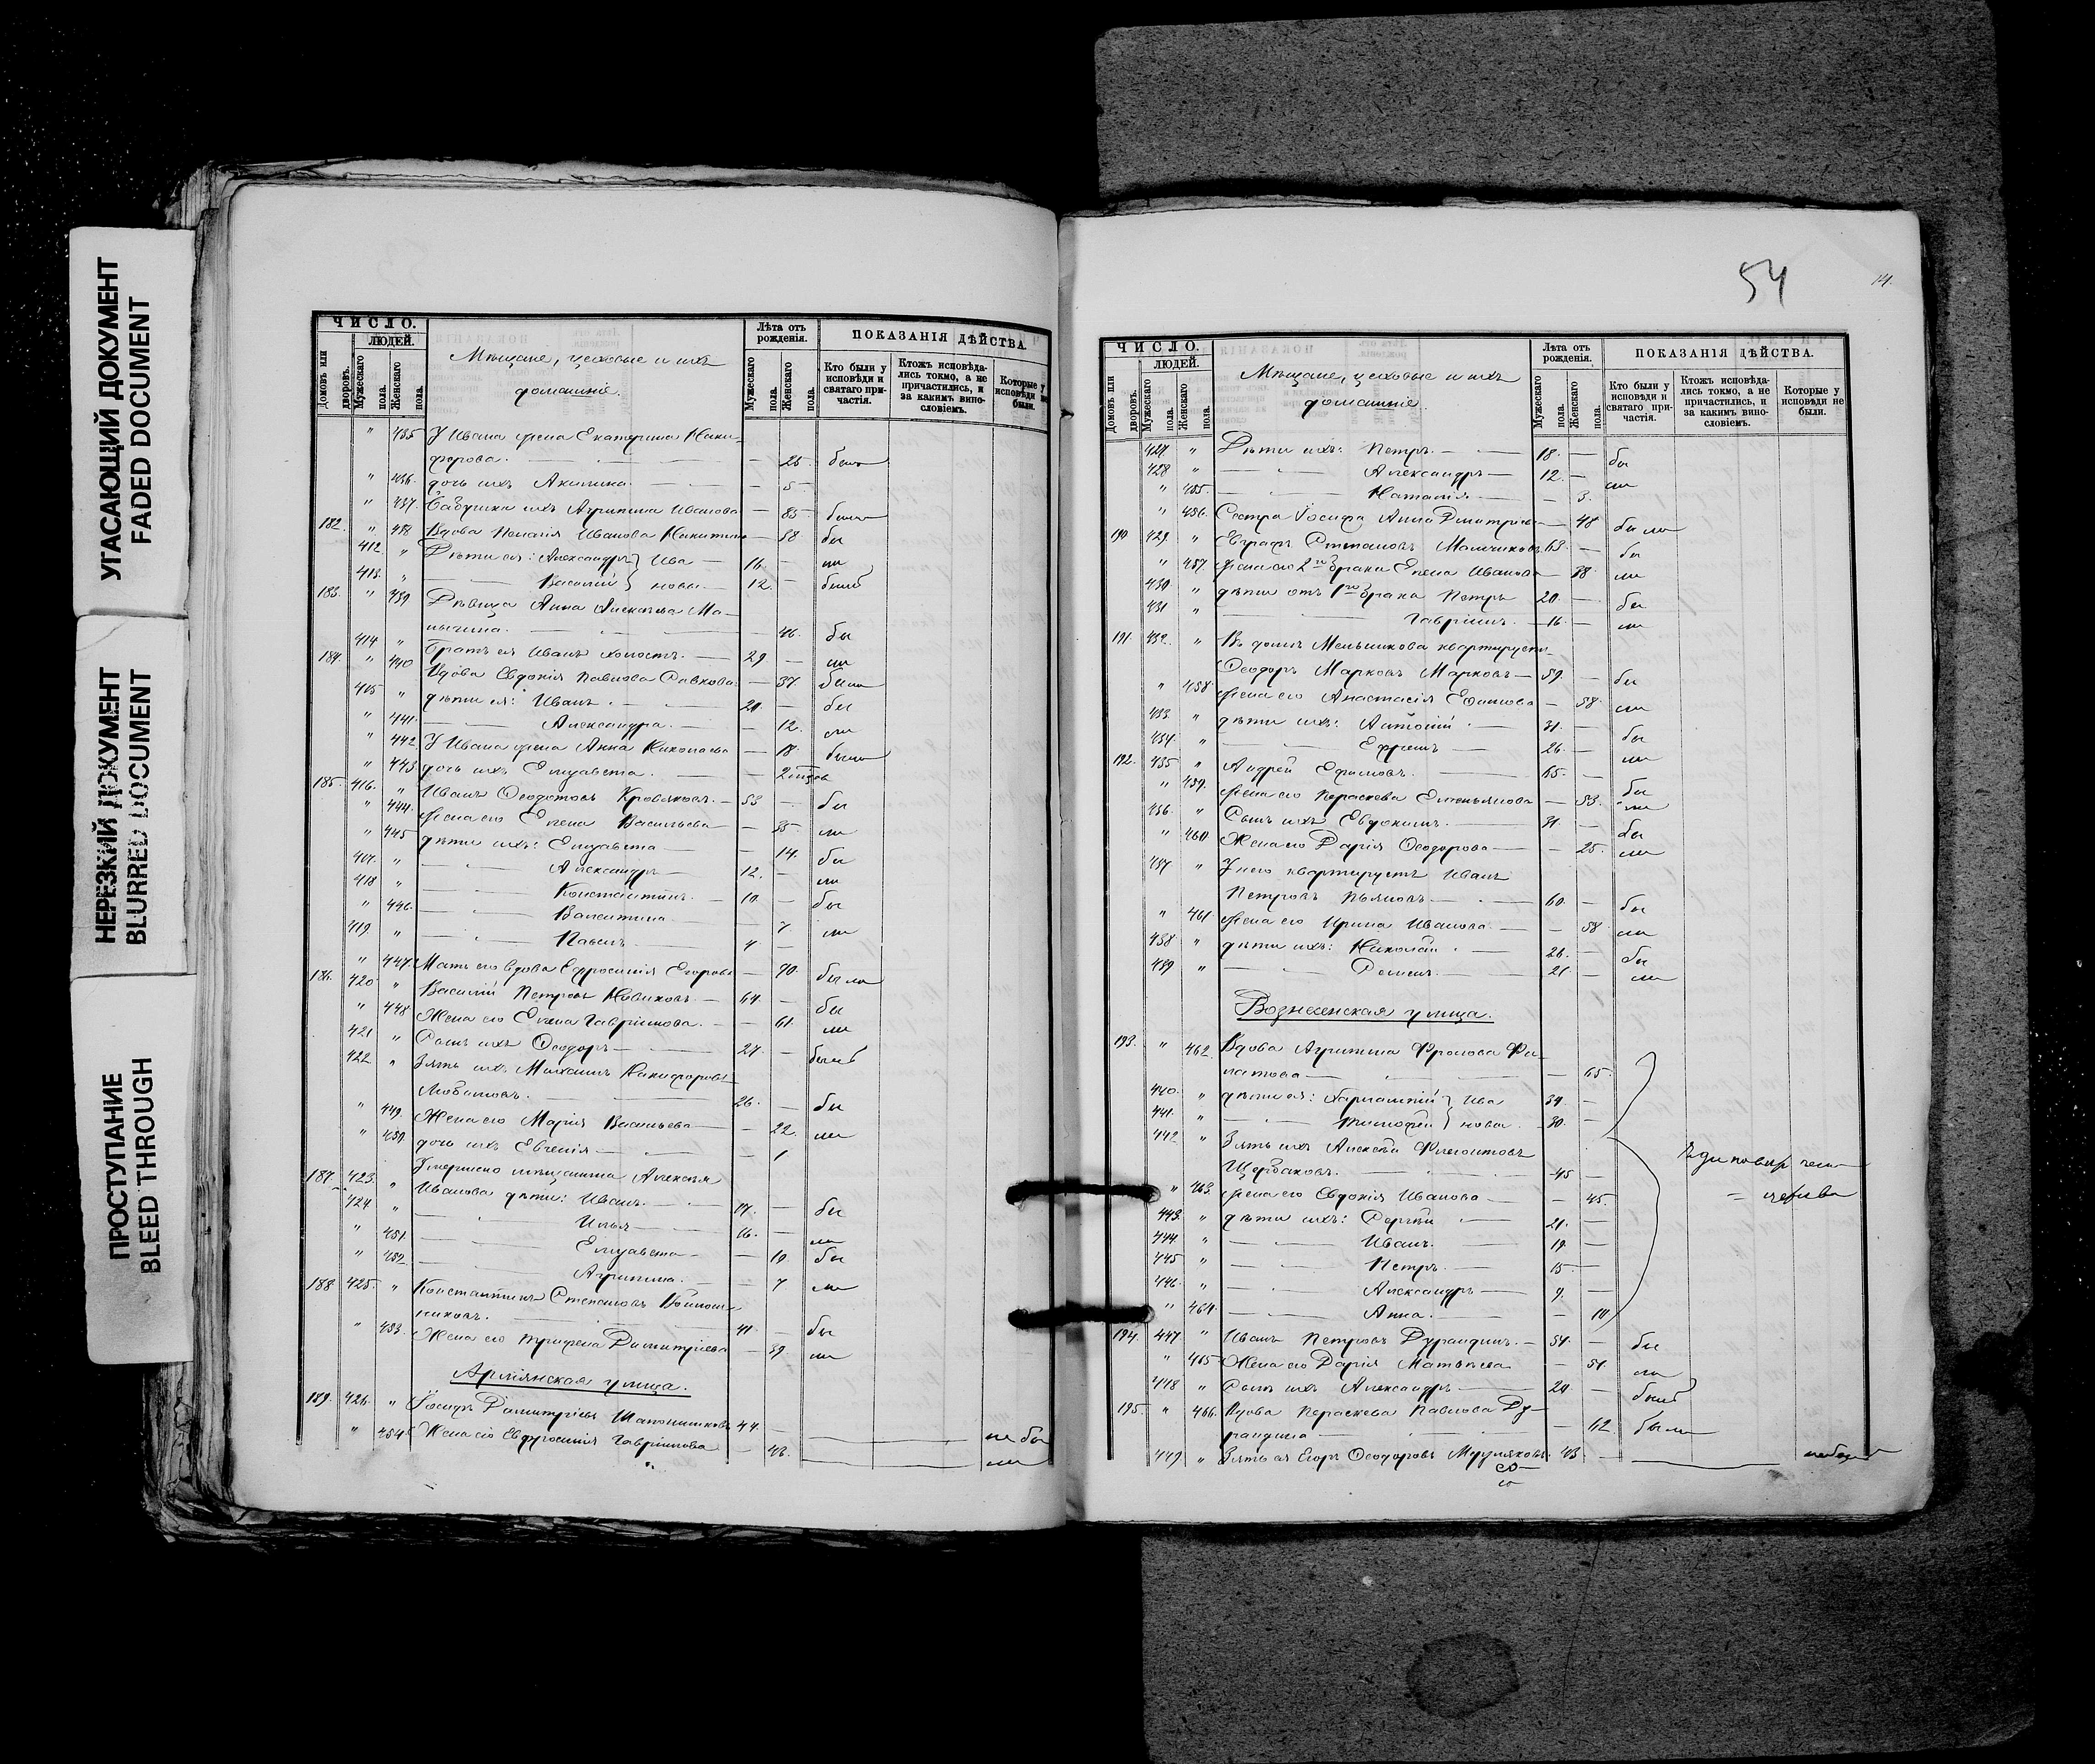 УГАСАЮЩИЙ ДОКУМЕНТ
FADED DOCUMENT
НЕРЕЗКИЙ ДОКУМЕНТ
BLURRED DOCUMENT
ПРОСТУПАНИЕ
BLEED THROUGH
ЧИСЛО.
ЛЮДЕЙ.
Домовъ или дворовъ.
Мужескаго пола.
Женскаго пола.
Мѣщане, цеховые и ихъ
домашніе.
Лѣта отъ рожденія.
Мужескаго пола.
Женскаго пола.
ПОКАЗАНІЯ ДѢЙСТВА.
Кто были у исповѣди и святаго причастія.
Ктожъ исповѣдались токмо, а не причастились, и за какимъ винословіемъ.
Которые у исповѣди не были.
" 435 У Ивана жена Екатерина Ники-
форова. — 26. была
" 436. дочь ихъ Акилина. — 5
" 437. Бабушка ихъ Агрипина Иванова — 85 была
182. " 438 Вдова Пелагія Иванова Никитина — 58 бы
412. " Дѣти ея: Александръ } Ива — 16. — ли
413. " Василій } новы. — 12. — былъ
183. " 439 Дѣвица Анна Алексѣева Ма-
— 46. бы
414 " Братъ ея Иванъ холостъ. — 29 — ли
184. " 440 Вдова Евдокія Павлова Савкова. — 37. была
415 " дѣти ея: Иванъ. — 20. — бы
" 441. Александра. — 12. ли
" 442. У Ивана жена Анна Николаева — 18. была
" 443. дочь ихъ Елизавета. —
185. 416. " Иванъ Ѳеодотовъ — 53 — бы
" 444. Жена его Елена Васильева — 35. ли
" 445 дѣти ихъ: Елизавета — 14. бы
417. " Александръ — 12. — ли
418 " Константинъ. — 10. — бы
" 446. Валентина — 7 ли
419. " Павелъ. — 4 —
" 447. Мать его вдова Ефросинія Егорова — 70. была
186. 420 " Василій Петровъ Новиковъ. — 64. — бы
" 448 Жена его Елена Гавріилова. — 61. ли
421 " Сынъ ихъ Ѳеодоръ — 24. — былъ
422. " Зять ихъ Михаилъ Никифоровъ
Любимовъ. — 26. — бы
" 449. Жена его Марія Васильева — 22. ли
" 450. дочь ихъ Евгенія — 1
187. 423. " Умершаго мѣщанина Алексѣя
Иванова дѣти: Иванъ. — 17. — бы
424. " Илья — 16. — ли
" 451. Елизавета — 10. бы
" 452. Агрипина. — 7. ли
188 425. " Константинъ Степановъ
никовъ. — 41. — бы
" 453. Жена его Трифена Димитріева — 39. ли
Армянская улица.
189. 426. " Іосифъ Димитріевъ Шапошниковъ 44. — не бы
" 454 Жена его Евфросинія Гавріилова — 43. ли
54
14.
ЧИСЛО.
ЛЮДЕЙ.
Домовъ или дворовъ.
Мужескаго пола.
Женскаго пола.
Мѣщане, цеховые и ихъ
домашніе.
Лѣта отъ рожденія.
Мужескаго пола.
Женскаго пола.
ПОКАЗАНІЯ ДѢЙСТВА.
Кто были у исповѣди и святаго причастія.
Ктожъ исповѣдались токмо, а не причастились, и за какимъ винословіемъ.
Которые у исповѣди не были.
427. " Дѣти ихъ: Петръ. — 18. — бы
428 " Александръ — 12. — ли
" 455. Наталія — 3.
" 456. Сестра Іосифа Анна Дмитріева — 48 была
190 429. " Евграфъ Степановъ 63. — бы
" 457 Жена его 2го брака Елена Иванова — 38 ли
430 " дѣти отъ 1го брака Петръ 20. — бы
431 " Гавріилъ. — 16. — ли
191. 432. " Въ домѣ Мельникова квартируетъ
Ѳеодоръ Марковъ Марковъ — 59. — бы
" 458. Жена его Анастасія Ефимова — 58. ли
433. " дѣти ихъ: Антоній — 31. — бы
434 " Ефремъ — 26. — ли
192. 435 " Андрей Ефимовъ. 65. — бы
" 459. Жена его Параскева Емельянова — 53. ли
436. " Сынъ ихъ Евдокимъ. 31. — бы
" 460 Жена его Дарія Ѳеодорова — 25. ли
437 " У него квартируетъ Иванъ
Петровъ — 60. — бы
" 461. Жена его Ирина Иванова. — 58 ли
438 " дѣти ихъ: Николай — 26. — бы
439 " — 21. — ли
Вознесенская улица.
193. " 462. Вдова Агрипина Фролова Фи-
латова — 65.
440. " дѣти ея: Харлампій } Ива 34. —
441. " Тимофей } новы. 30. —
442. " Зять ихъ Алексѣй
Щербаковъ. 45 —
" 463. Жена его Евдокія Иванова — 45.
443. " дѣти ихъ: Сергѣй 21. —
444. " Иванъ. 19. —
445 " Петръ. 15 —
446. " Александръ 9. —
" 464. Анна. — 10
194. 447. " Иванъ Петровъ Дурандинъ. — 54. — бы
" 465 Жена его Дарія Матвѣева — 51. ли
448 " Сынъ ихъ Александръ — 20. — былъ
195. " 466. Вдова Параскева Павлова Ду-
рандина — 62 была
449 " Зять ея Егоръ Ѳеодоровъ 43 —